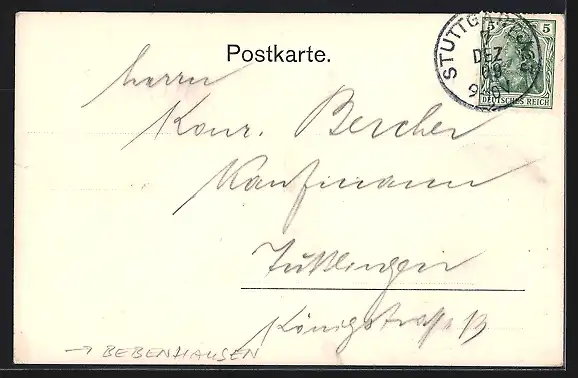 Postkarte.
STUTTGART
7
DEZ
09
5
DEUTSCHES REICH
Herrn
Konr. Bercher
Kaufmann
Tuttlingen
Königstraße 13
→ BEBENHAUSEN